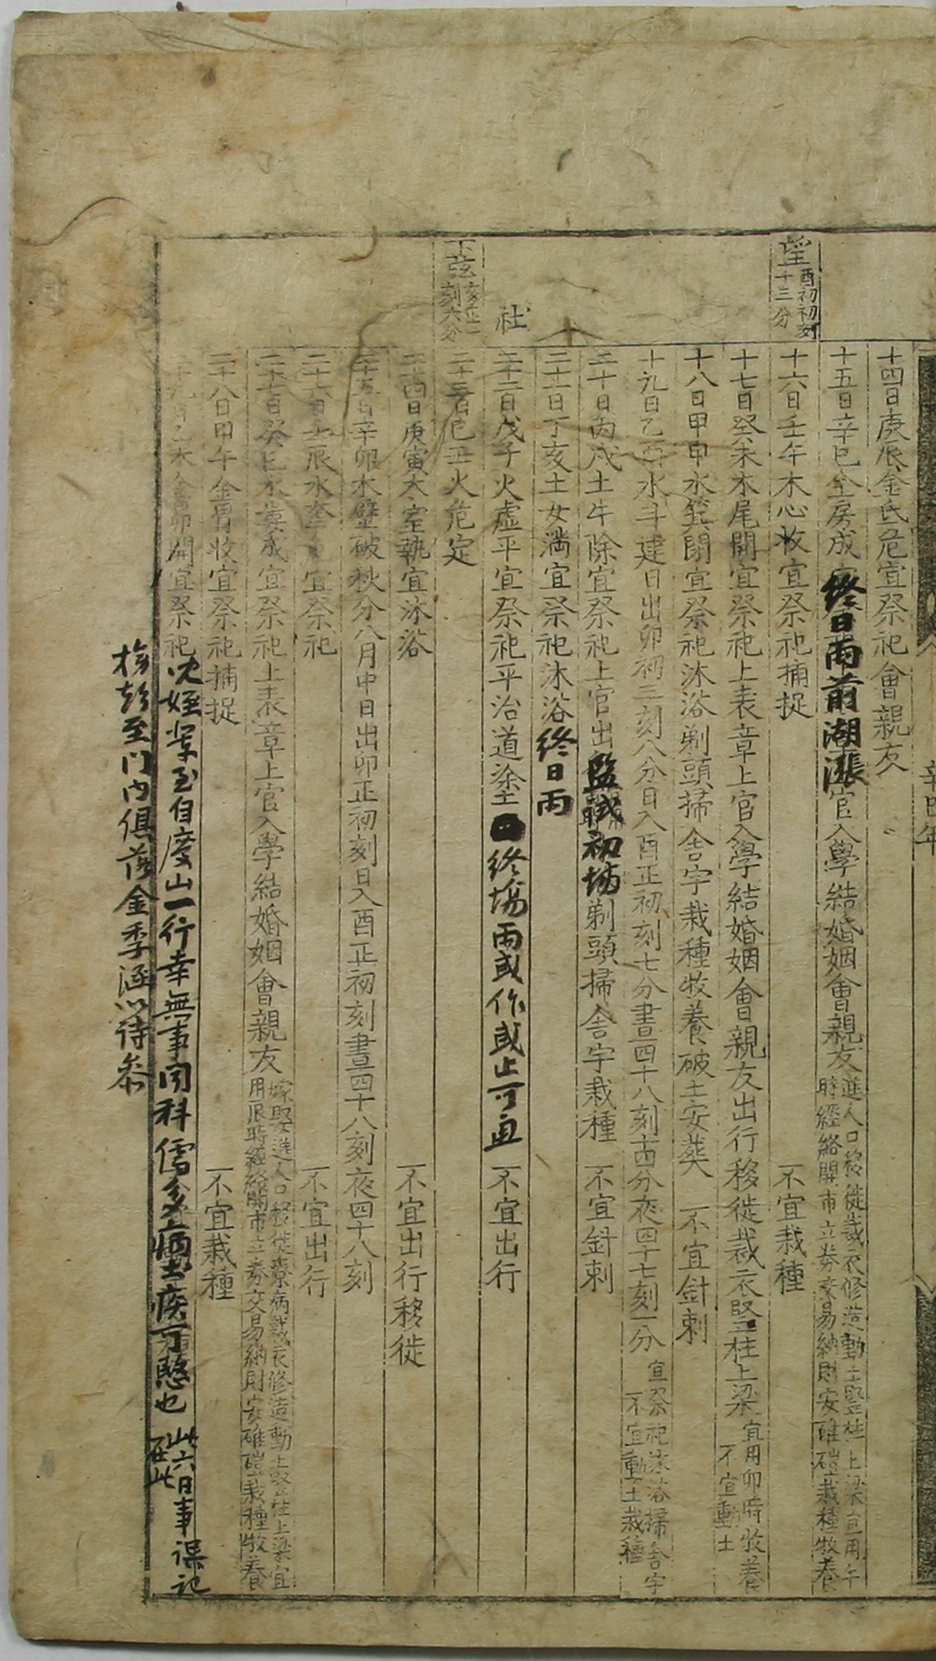 辛巳年
十四日庚辰金氐危宜祭祀會親友
十五日辛巳金房成宜
終日雨前湖漲
官入學結婚姻會親友
進人口移徙裁衣修造動土竪柱上梁宜用午
時經絡開市立券交易納財安碓磑栽種牧養
望
酉初初刻
十三分
十六日壬午木心收宜祭祀捕捉 不宜栽種
十七日癸未木尾開宜祭祀上表章上官入學結婚姻會親友出行移徙裁衣竪柱上梁
宜用卯時牧養
不宜動土
十八日甲申水箕閉宜祭祀沐浴剃頭掃舍宇栽種牧養破土安葬 不宜針刺
十九日乙酉水斗建日出卯初三刻八分日入酉正初刻七分晝四十八刻十四分夜四十七刻一分
宜祭祀沐浴掃舍宇
不宜動土栽種
二十日丙戌土牛除宜祭祀上官出
監試初場
剃頭掃舍宇栽種 不宜針刺
二十一日丁亥土女滿宜祭祀沐浴
終日雨
社
二十二日戊子火虛平宜祭祀平治道塗 不宜出行
終場雨或作或止可
下弦
亥正二
刻六分
二十三日己丑火危定
二十四日庚寅木室執宜沐浴 不宜出行移徙
二十五日辛卯木壁破秋分八月中日出卯正初刻日入酉正初刻晝四十八刻夜四十八刻
二十六日壬辰水奎危宜祭祀 不宜出行
二十七日癸巳水婁成宜祭祀上表章上官入學結婚姻會親友
嫁娶進人口移徙療病裁衣修造動土竪柱上梁宜
用辰時經絡開市立券交易納財安碓磑栽種牧養
二十八日甲午金胃收宜祭祀捕捉 不宜栽種
二十九日乙未金昴開宜祭祀
沈姪 至自度山一行幸無事同科儒多 疾可愍也 此六日事誤記
在此
至門內俱 金季涵以待